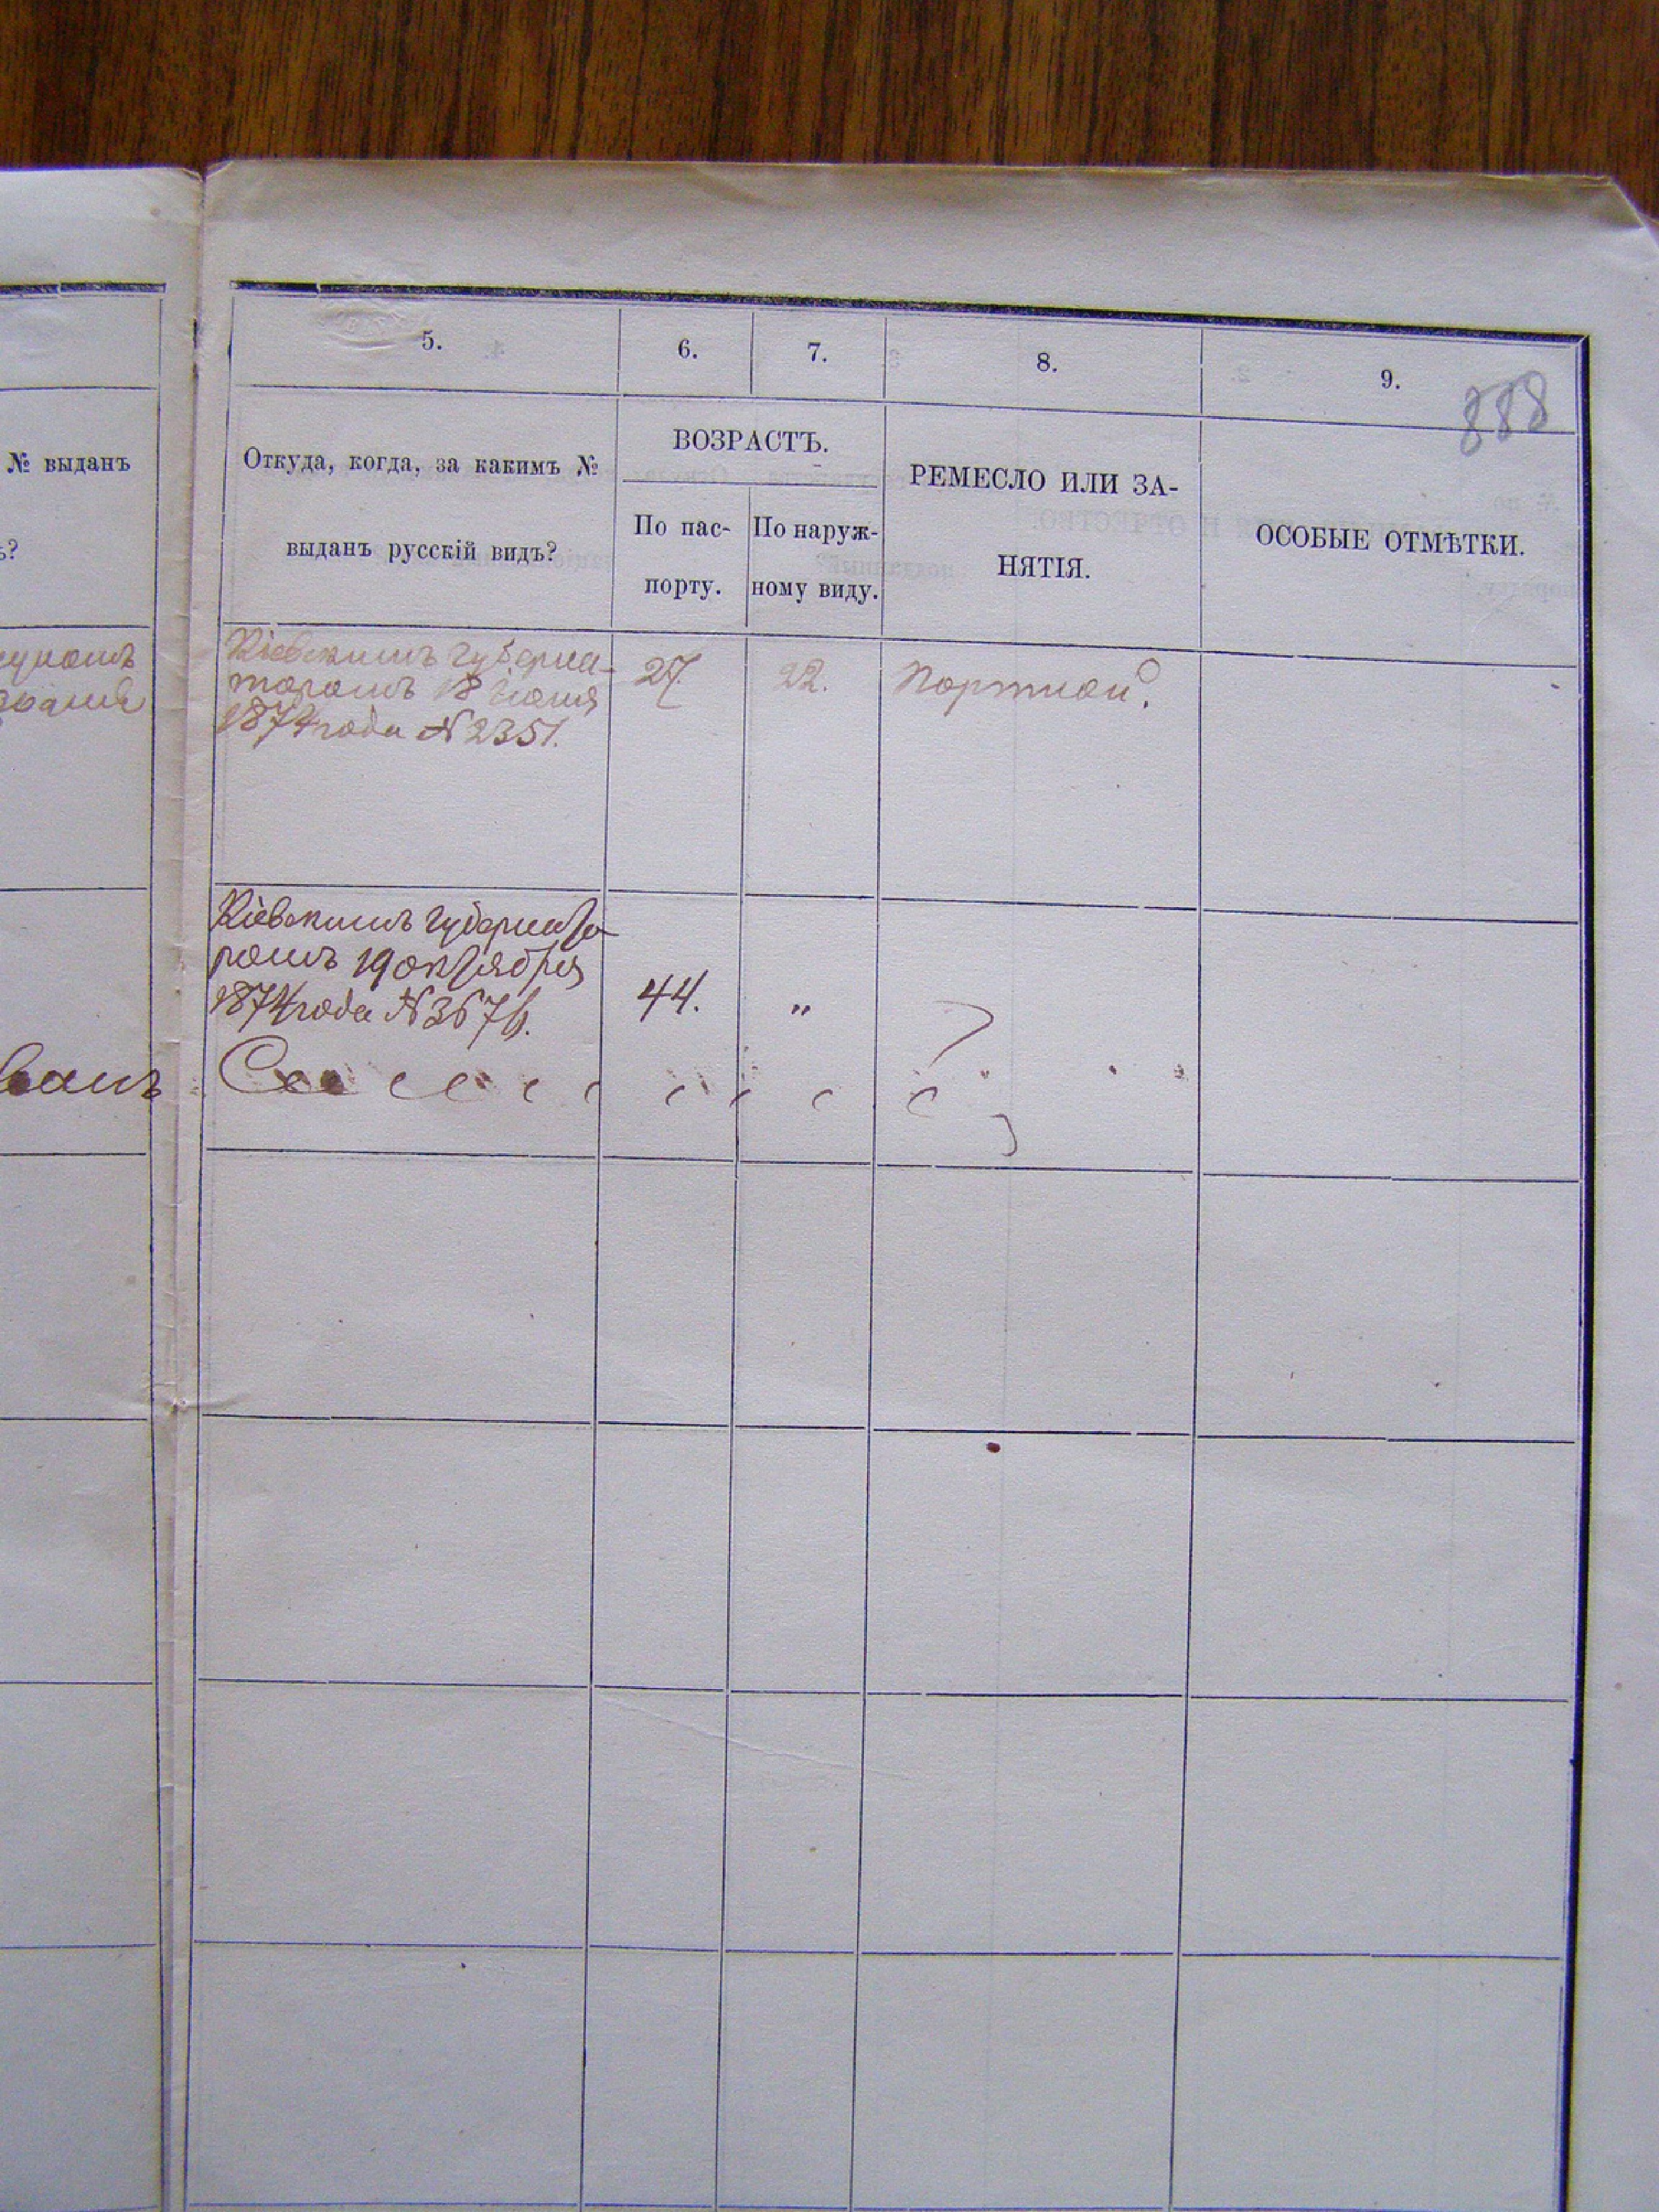 № выданъ
5.
6.
7.
8.
9.
888
Откуда, когда, за какимъ №
выданъ русскій видъ?
ВОЗРАСТЪ.
По пас-
порту.
По наруж-
ному виду.
РЕМЕСЛО ИЛИ ЗА-
НЯТІЯ.
ОСОБЫЕ ОТМѢТКИ.
Кіевскимъ Губерна-
торомъ 18 Іюня
1874 года № 2351.
27
22.
Портной.
Кіевскимъ Губернато-
ромъ 19 октября
1874 года № 3676.
44.
"